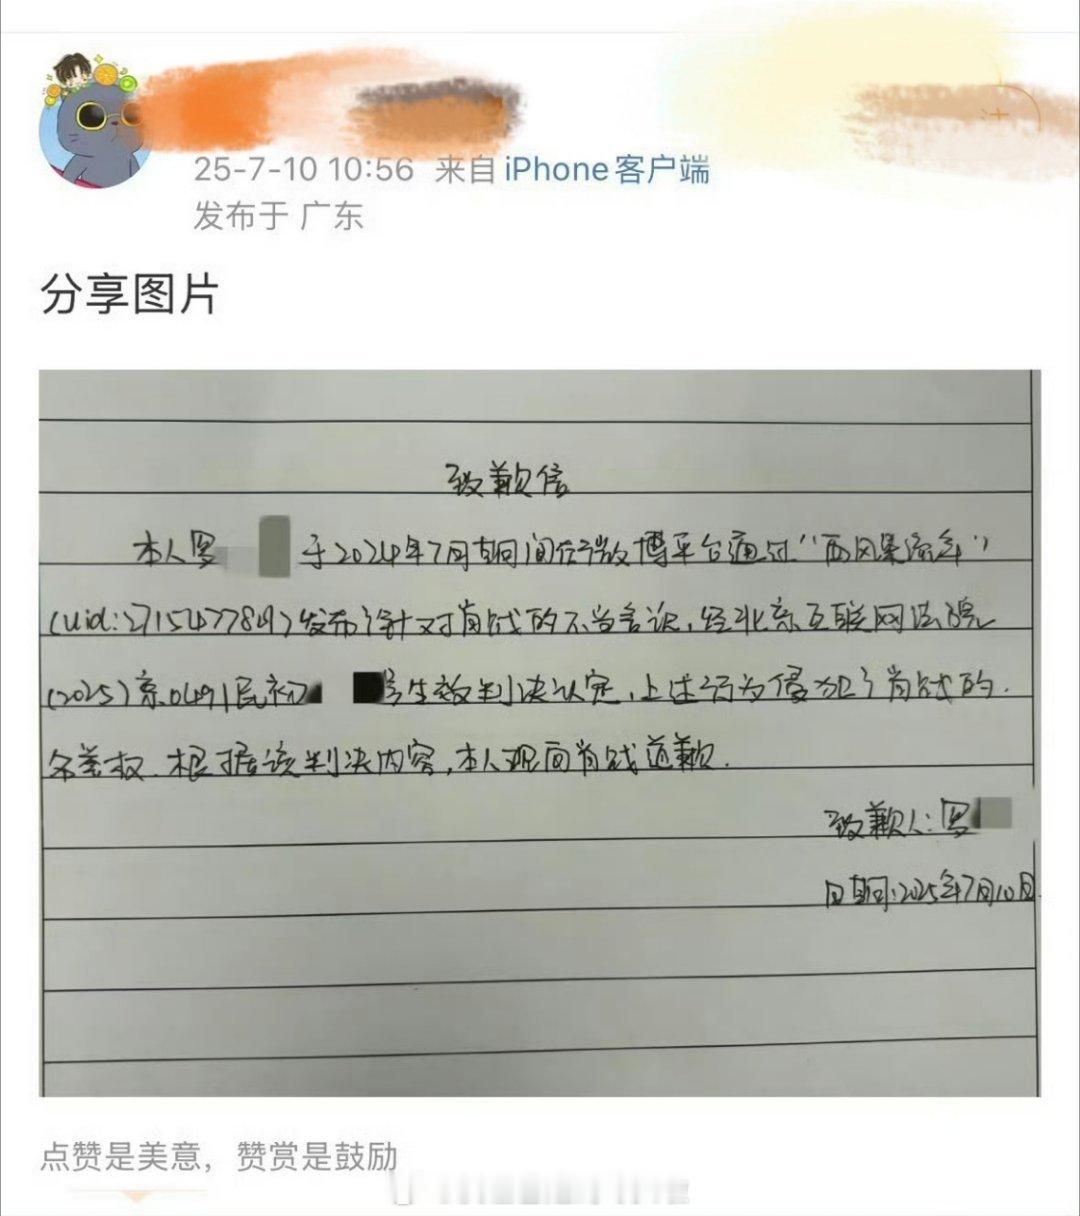 25-7-10 10:56 来自 iPhone客户端
发布于 广东
分享图片
致歉信
本人罗 于2024年7月期间在微博平台通过“西风暴流年”
(uid:2715477849)发布了针对肖战的不当言论,经北京互联网法院
(2025)京0491民初 号生效判决认定,上述行为侵犯了肖战的
名誉权.根据该判决内容,本人现向肖战道歉.
致歉人:罗
日期:2025年7月10日
点赞是美意，赞赏是鼓励